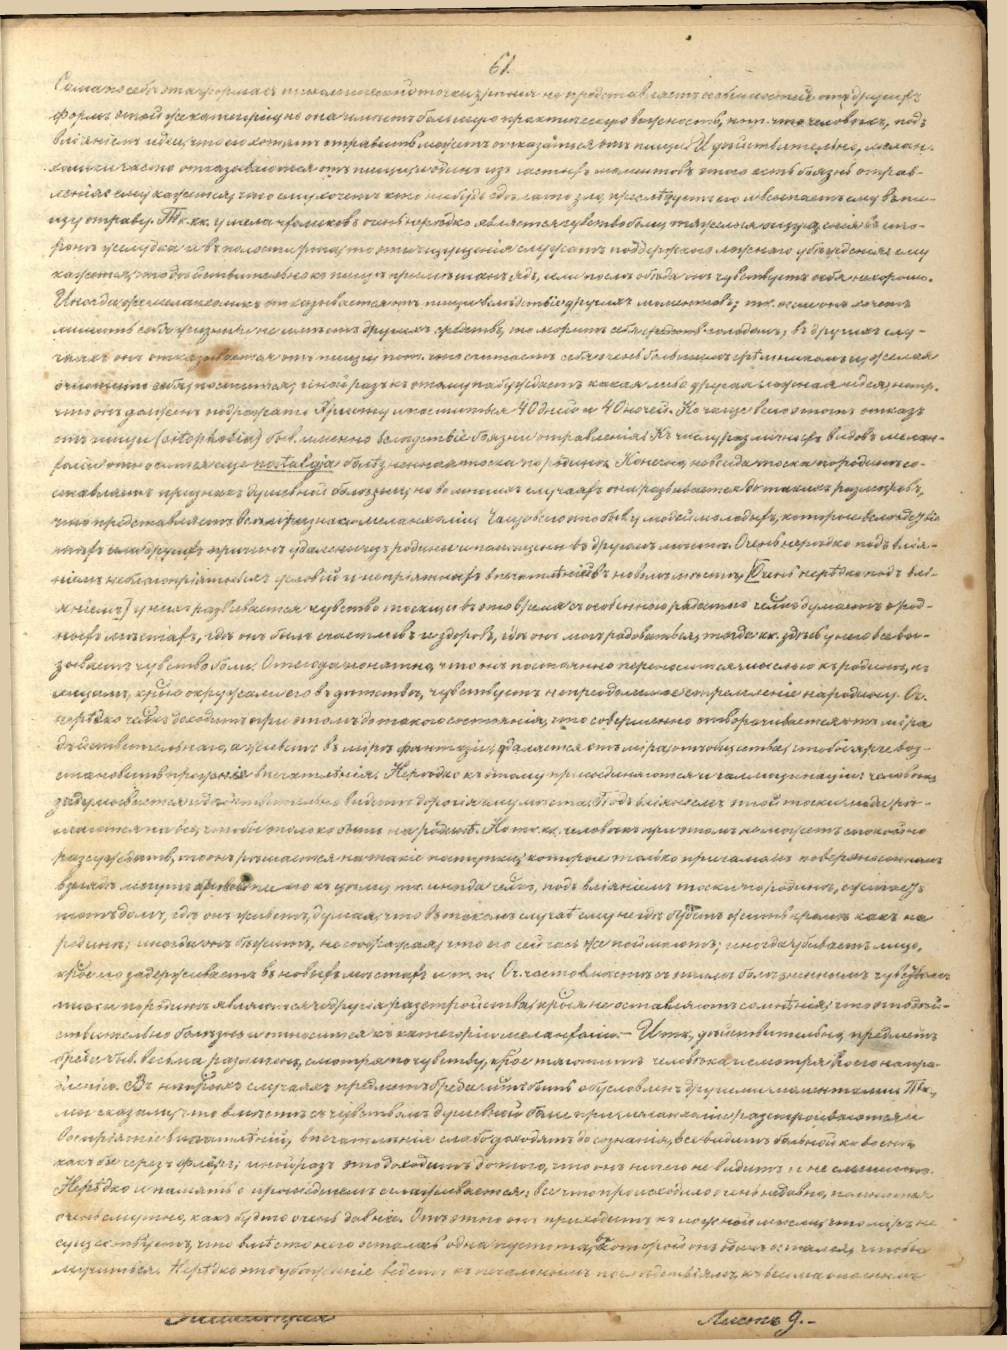 61.
Сама по себѣ эта форма съ психологической точки зрѣнія не представляетъ особенностей отъ другихъ
формъ этой же категоріи, но она имѣетъ большую практическую важность, нпр. что человѣкъ, подъ
вліяніемъ идеи, что его хотятъ отравить можетъ отказаться отъ пищи. И дѣйствительно, мелан-
холики часто отказываются отъ пищи; одинъ изъ частыхъ моментовъ этого есть боязнь отрав-
ленія: ему кажется, что ему хочетъ кто нибудь сдѣлать зло, преслѣдуетъ его и всыпаетъ ему въ пи-
щу отраву. Тк. кк. у меланхоликовъ очень нерѣдко является чувство боли, тяжелыя ощущенія въ сто-
ронѣ желудка и въ полости рта, то эти ощущенія служатъ поддержкою ложнаго убѣжденія: ему
кажется, что дѣйствительно къ пищѣ примѣшанъ ядъ, или послѣ обѣда онъ чувствуетъ себя нехорошо.
Иногда же меланхоликъ отказывается отъ пищи вслѣдствіе другихъ моментовъ; тк. если онъ хочетъ
лишить себя жизни и не имѣетъ другихъ средствъ, то моритъ себя голодомъ; въ другихъ слу-
чаяхъ онъ отказывается отъ пищи, пот. что считаетъ себя очень большимъ грѣшникомъ и, желая
очистить себя, постится; иной разъ къ этому побуждаетъ какая либо другая ложная идея, напр.
что онъ долженъ подражать Христу и поститься 40 дней и 40 ночей. Но чаще всего этотъ отказъ
отъ пищи (sitophobia) быв. именно вслѣдствіе боязни отравленія. Къ числу различныхъ видовъ мелан-
холіи относится еще nostalgia болѣзненная тоска по родинѣ. Конечно, не всегда тоска по родинѣ со-
ставляетъ признакъ душевной болѣзни, но во многихъ случаяхъ она развивается до такихъ размѣровъ,
что представляетъ всѣ признаки меланхоліи. Чаще всего это быв. у людей молодыхъ, которые вслѣдствіе
тѣхъ или другихъ причинъ удалены изъ родины и помѣщены въ другомъ мѣстѣ. Очень нерѣдко подъ влія-
ніемъ неблагопріятныхъ условій и непріятныхъ впечатлѣній въ новомъ мѣстѣ, [Очень нерѣдко подъ влі-
яніемъ] у нихъ развивается чувство тоски; въ это время съ особенною радостью челов. думаетъ о род-
ныхъ мѣстахъ, гдѣ онъ былъ счастливъ и здоровъ, гдѣ онъ могъ радоваться, тогда кк. здѣсь у него все вы-
зываетъ чувство боли. Отсюда понятно, что онъ постоянно переносится мыслью къ родинѣ, къ
лицамъ, крые окружали его въ дѣтствѣ, чувствуетъ непреодолимое стремленіе на родину. Оч.
нерѣдко челов. доходитъ при этомъ до такого состоянія, что совершенно отворачивается отъ міра
дѣйствительнаго, а живетъ въ мірѣ фантазіи, удаляется отъ міра, отъ общества, чтобы ярче воз-
становить прежнія впечатлѣнія. Нерѣдко къ этому присоединяются и галлюцинаціи: человѣкъ
задумывается и дѣйствительно видитъ дорогія ему мѣста. Подъ вліяніемъ этой тоски люди рѣ-
шаются на все, чтобы только быть на родинѣ. Но тк. кк. человѣкъ при этомъ не можетъ спокойно
разсуждать, то онъ рѣшается на такіе поступки, которые только при самомъ поверхностномъ
взглядѣ могутъ привести его къ цѣли; тк. иногда челов., подъ вліяніемъ тоски по родинѣ, сжигаетъ
тотъ домъ, гдѣ онъ живетъ, думая, что въ такомъ случаѣ ему негдѣ будетъ жить кромѣ какъ на
родинѣ; иногда онъ бѣжитъ, не соображая, что его сейчасъ же поймаютъ; иногда убиваетъ лицо,
крое его задерживаетъ въ новыхъ мѣстахъ и т. п. Оч. часто вмѣстѣ съ этимъ болѣзненнымъ чувствомъ
тоски по родинѣ являются и другія разстройства, крыя не оставляютъ сомнѣнія, что это дѣй-
ствительно болѣзнь и относится къ категоріи меланхоліи. — Итк, дѣйствительно, предметъ
бреда быв. весьма различенъ, смотря по чувству, крое тяготитъ человѣка и смотря по его напра-
вленію. Въ нѣкрыхъ случаяхъ предметъ бреда м. быть обусловленъ другими моментами. Тк,
мы сказали, что вмѣстѣ съ чувствомъ душевной боли при меланхоліи разстроивается и
воспріятіе впечатлѣній, впечатлѣнія слабо доходятъ до сознанія, все видитъ больной ко всему
какъ бы черезъ флёръ; иной разъ это доходитъ до того, что онъ ничего не видитъ и не слышитъ.
Нерѣдко и память о прошедшемъ сглаживается: все что происходило очень недавно, помнится
очень смутно, какъ будто очень давно. Отъ этого онъ приходитъ къ ложной мысли, что міръ не
существуетъ, что вмѣсто него осталась одна пустота, въ которой онъ одинъ остался, чтобы
мучиться. Нерѣдко это убѣжденіе ведетъ къ печальнымъ послѣдствіямъ, къ весьма опаснымъ
Листъ 9.-